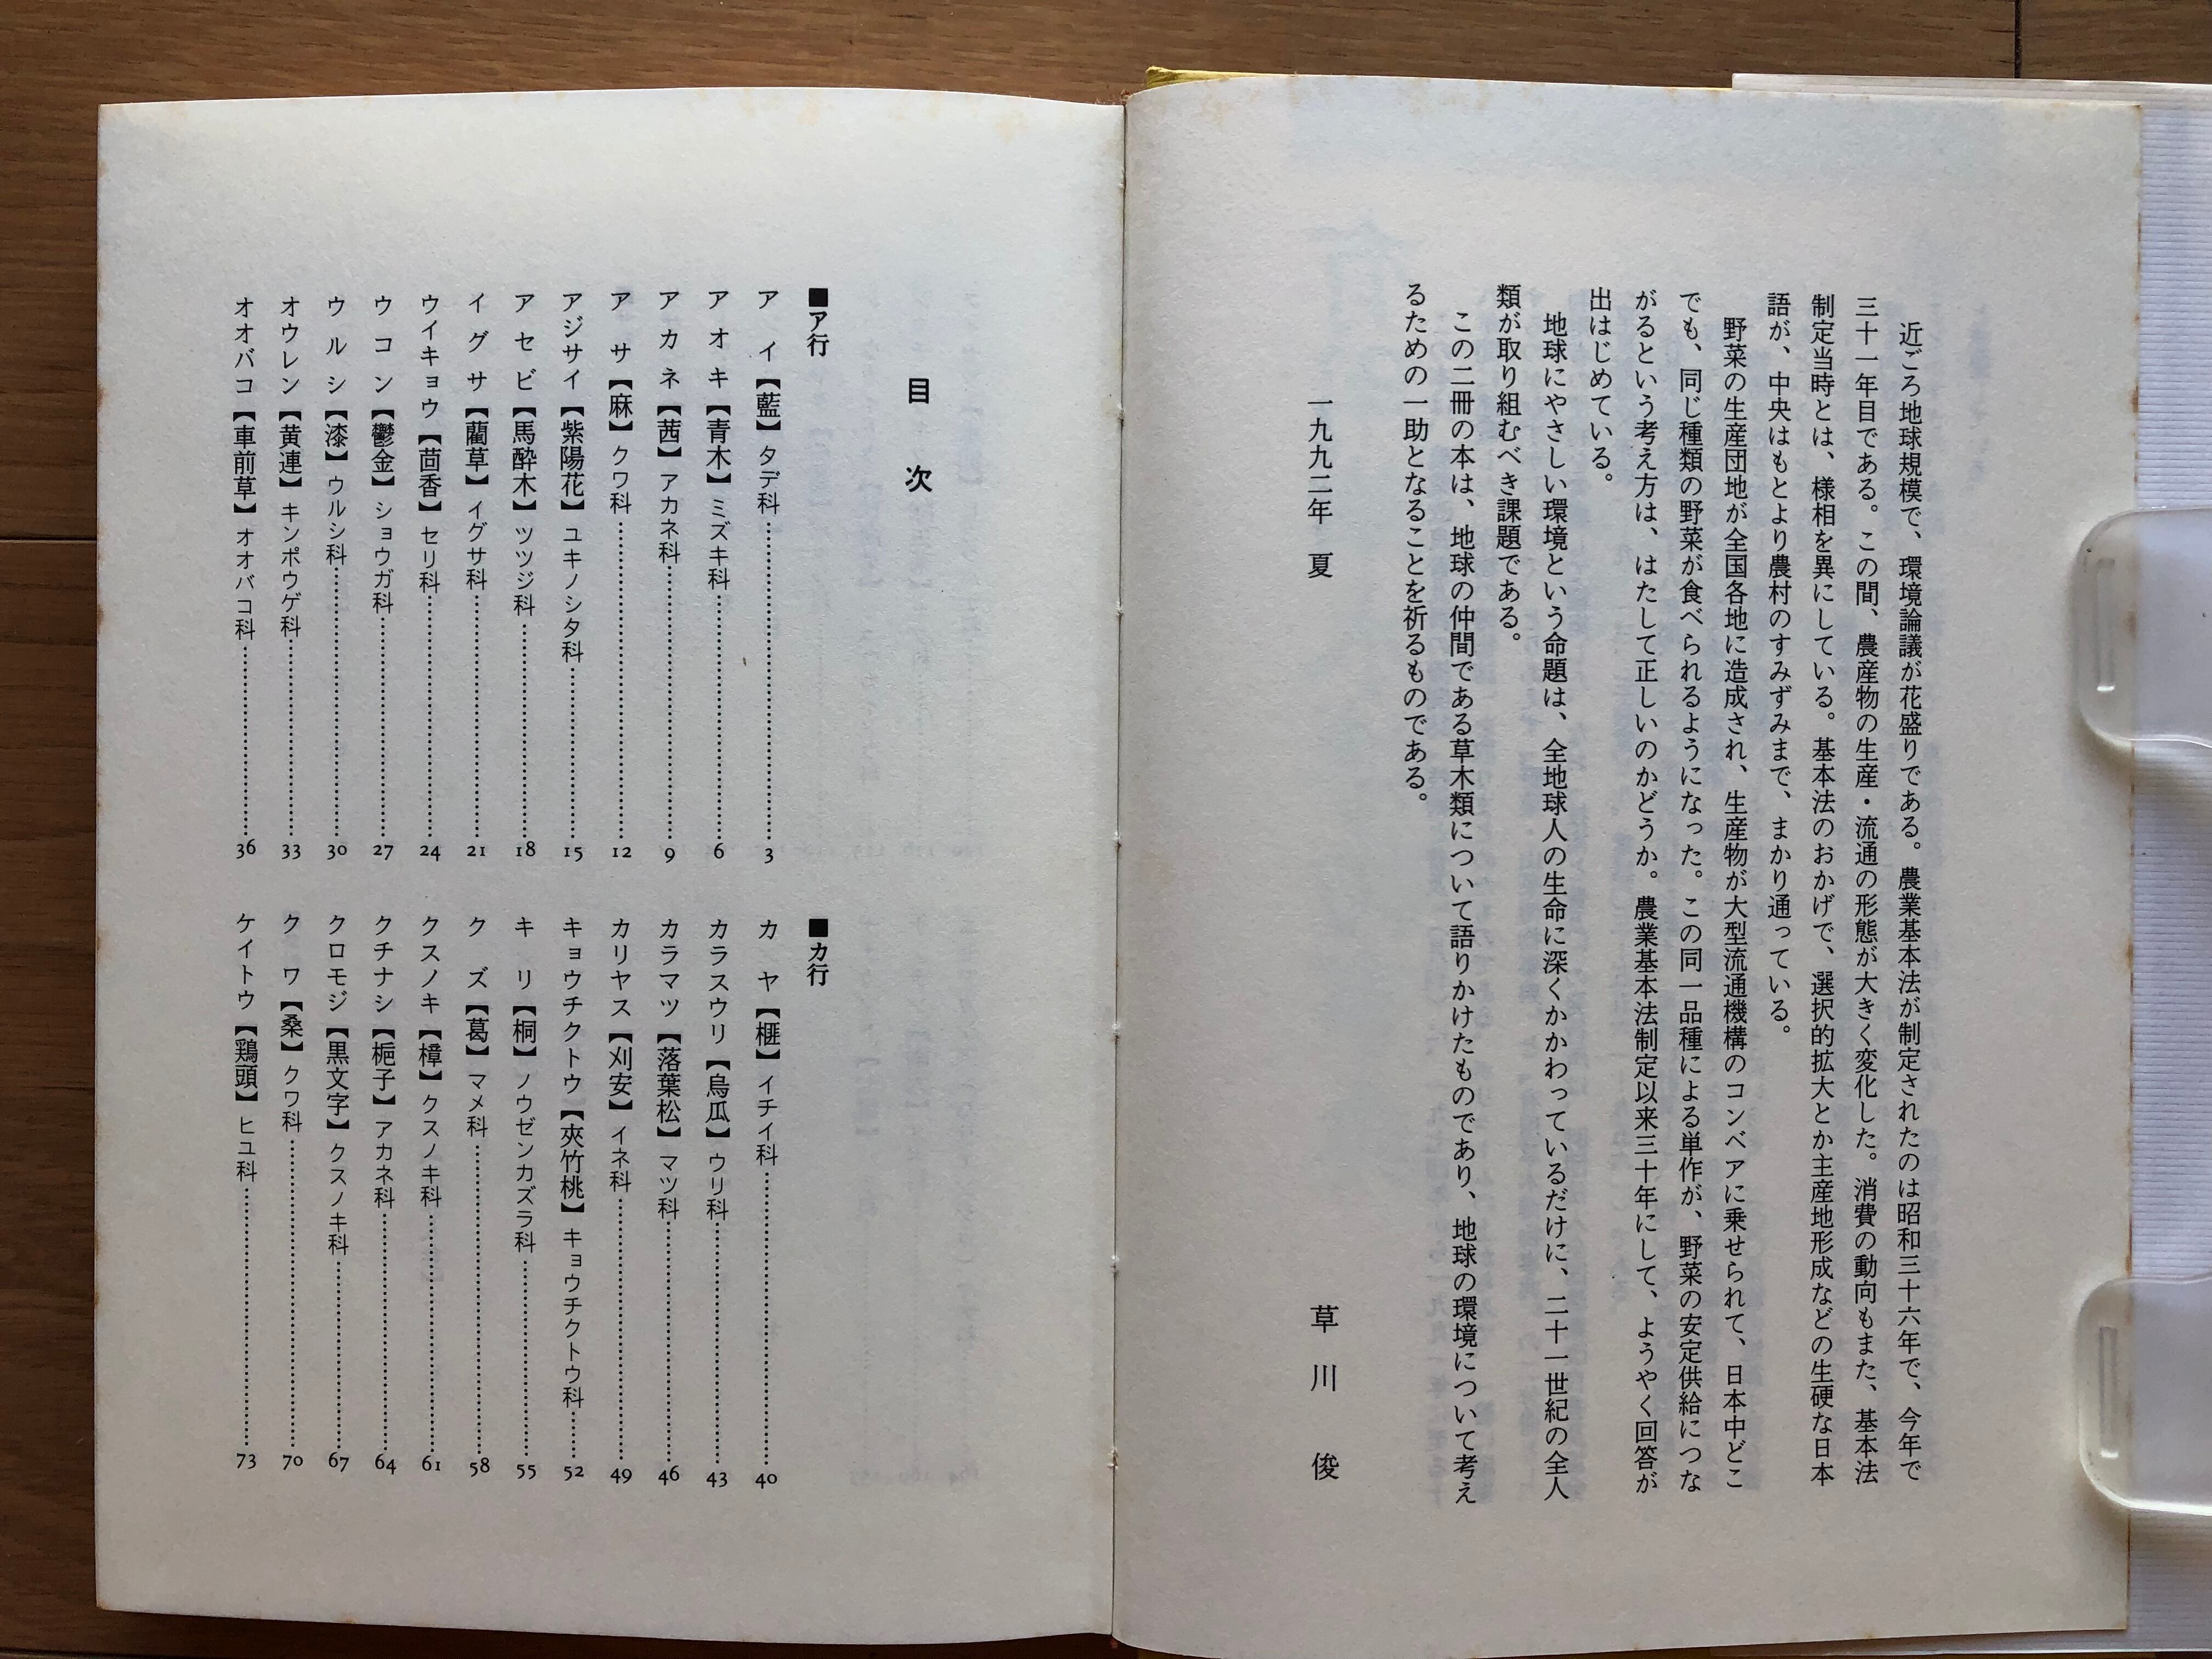 近ごろ地球規模で、環境論議が花盛りである。農業基本法が制定されたのは昭和三十六年で、今年で
三十一年目である。この間、農産物の生産・流通の形態が大きく変化した。消費の動向もまた、基本法
制定当時とは、様相を異にしている。基本法のおかげで、選択的拡大とか主産地形成などの生硬な日本
語が、中央はもとより農村のすみずみまで、まかり通っている。
野菜の生産団地が全国各地に造成され、生産物が大型流通機構のコンベアに乗せられて、日本中どこ
でも、同じ種類の野菜が食べられるようになった。この同一品種による単作が、野菜の安定供給につな
がるという考え方は、はたして正しいのかどうか。農業基本法制定以来三十年にして、ようやく回答が
出はじめている。
地球にやさしい環境という命題は、全地球人の生命に深くかかわっているだけに、二十一世紀の全人
類が取り組むべき課題である。
この二冊の本は、地球の仲間である草木類について語りかけたものであり、地球の環境について考え
るための一助となることを祈るものである。
一九九二年 夏
草川 俊
目次
■ア行
アイ【藍】タデ科…………3
アオキ【青木】ミズキ科…………6
アカネ【茜】アカネ科…………9
アサ【麻】クワ科…………12
アジサイ【紫陽花】ユキノシタ科…………15
アセビ【馬酔木】ツツジ科…………18
イグサ【藺草】イグサ科…………21
ウイキョウ【茴香】セリ科…………24
ウコン【鬱金】ショウガ科…………27
ウルシ【漆】ウルシ科…………30
オウレン【黄連】キンポウゲ科…………33
オオバコ【車前草】オオバコ科…………36
■カ行
カヤ【榧】イチイ科…………40
カラスウリ【烏瓜】ウリ科…………43
カラマツ【落葉松】マツ科…………46
カリヤス【刈安】イネ科…………49
キョウチクトウ【夾竹桃】キョウチクトウ科……52
キリ【桐】ノウゼンカズラ科…………55
クズ【葛】マメ科…………58
クスノキ【樟】クスノキ科…………61
クチナシ【梔子】アカネ科…………64
クロモジ【黒文字】クスノキ科…………67
クワ【桑】クワ科…………70
ケイトウ【鶏頭】ヒユ科…………73